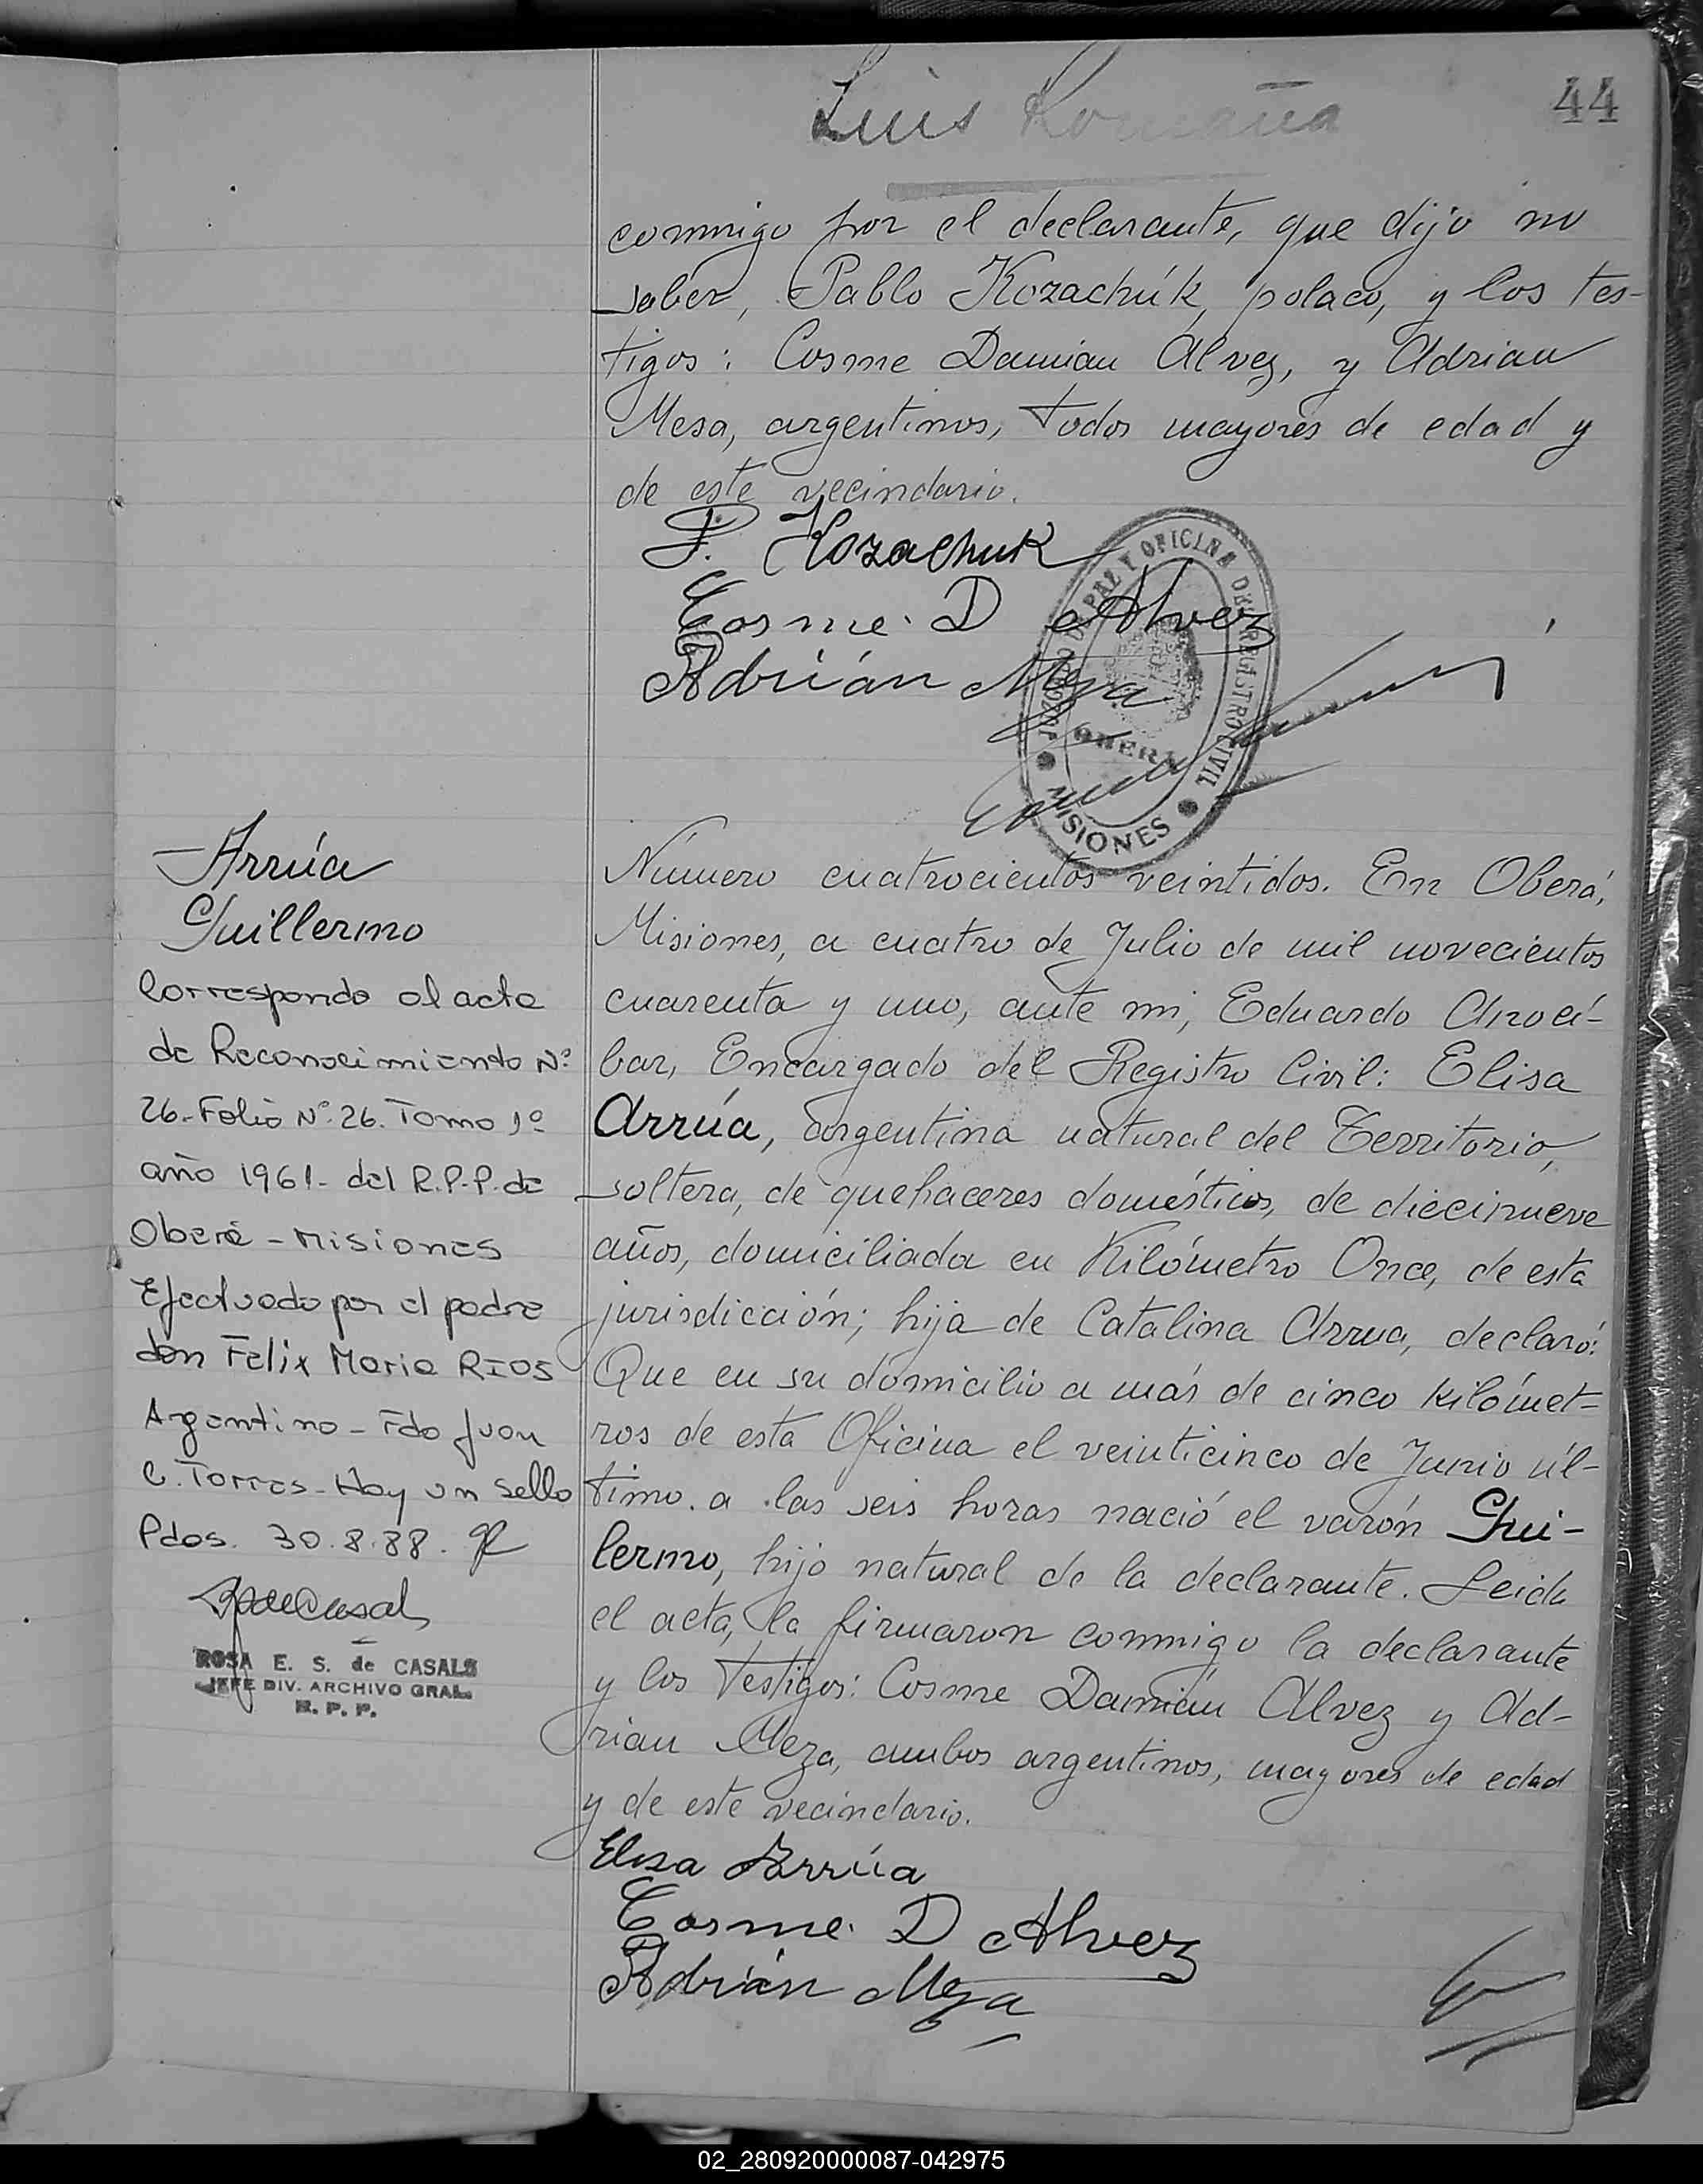 Luis Romaña
44
conmigo por el declarante, que dijo no
saber, Pablo Kozachúk, polaco, y los tes-
tigos: Cosme Damian Alvez, y Adrian
Mesa, argentinos, todos mayores de edad y
de este vecindario.
P. Kozachuk
Cosme. D Alvez
Adrián Meza
JUZGADO DE PAZ Y OFICINA DEL REGISTRO CIVIL
OBERÁ
MISIONES
Arrúa
Guillermo
Corresponde al acta
de Reconocimiento Nº
26-Folio Nº 26. Tomo 1º
año 1961- del R.P.P. de
Oberá - Misiones
Efectuado por el padre
don Felix Maria RIOS
Argentino - Fdo Juan
C. Torres - Hay un sello
Pdos. 30.8.88.
ROSA E. S. de CASALS
JEFE DIV. ARCHIVO GRAL.
R. P. P.
Número cuatrocientos veintidos. En Oberá,
Misiones, a cuatro de Julio de mil novecientos
cuarenta y uno, ante mi, Eduardo Arocí-
bar, Encargado del Registro Civil: Elisa
Arrúa, argentina natural del Territorio,
soltera, de quehaceres domésticos, de diecinueve
años, domiciliada en Kilómetro Once, de esta
jurisdicción; hija de Catalina Arrua, declaró:
Que en su domicilio a más de cinco kilómet-
ros de esta Oficina el veinticinco de Junio úl-
timo. a las seis horas nació el varón Gui-
lermo, hijo natural de la declarante. Leida
el acta, la firmaron conmigo la declarante
y los testigos: Cosme Damián Alvez y Ad-
rian Meza, ambos argentinos, mayores de edad
y de este vecindario.
Elisa Arrúa
Cosme. D Alvez
Adrián Meza
02_280920000087-042975